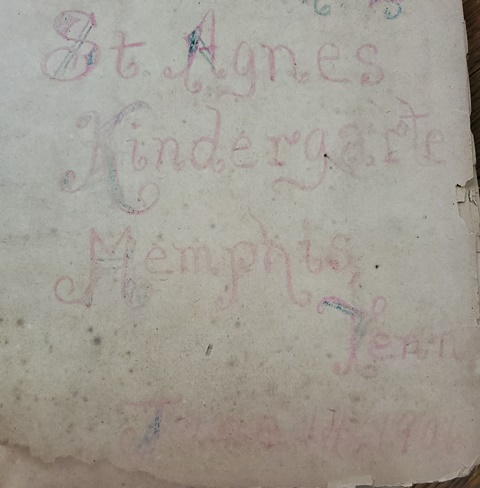 St. Agnes
Kindergarte
Memphis,
Tenn
June 14, 190